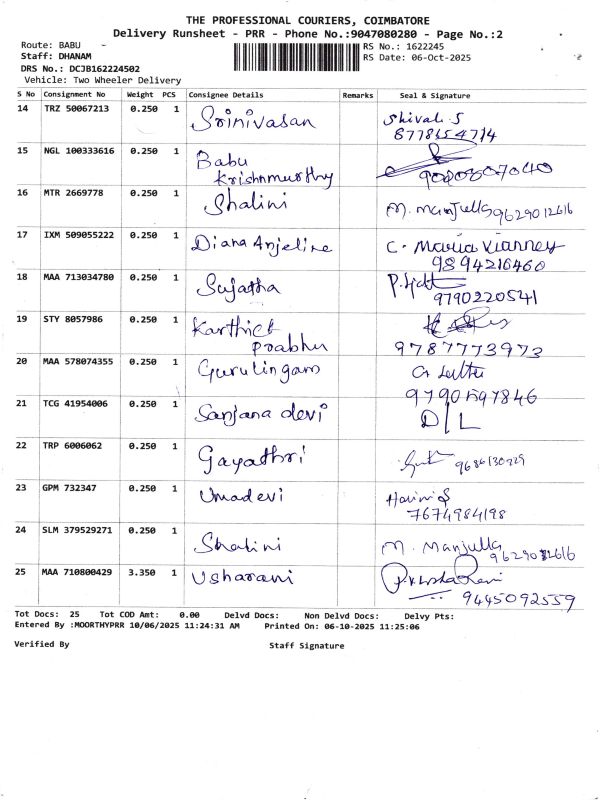 THE PROFESSIONAL COURIERS, COIMBATORE
Delivery Runsheet - PRR - Phone No.:9047080280 - Page No.:2
Route: BABU -
Staff: DHANAM
DRS No.: DCJB162224502
Vehicle: Two Wheeler Delivery
RS No.: 1622245
RS Date: 06-Oct-2025
S No Consignment No Weight PCS Consignee Details Remarks Seal & Signature
14 TRZ 50067213 0.250 1 Srinivasan Shivali.S
15 NGL 100333616 0.250 1 Babu
Krishnmurthy
16 MTR 2669778 0.250 1 Shalini M. Manjulla 9629012616
17 IXM 509055222 0.250 1 Diana Anjeline C. Maria Vianney
9894216460
18 MAA 713034780 0.250 1 Sujatha
9790220541
19 STY 8057986 0.250 1 Karthick
Prabhu
9787773973
20 MAA 578074355 0.250 1 Gurulingam
21 TCG 41954006 0.250 1 Sanjana devi D/L
22 TRP 6006062 0.250 1 Gayathri
23 GPM 732347 0.250 1 Umadevi Harini S
7674984198
24 SLM 379529271 0.250 1 Shalini M. Manjulla
25 MAA 710800429 3.350 1 Usharani
9445092559
Tot Docs: 25 Tot COD Amt: 0.00 Delvd Docs: Non Delvd Docs: Delvy Pts:
Entered By :MOORTHYPRR 10/06/2025 11:24:31 AM Printed On: 06-10-2025 11:25:06
Verified By Staff Signature